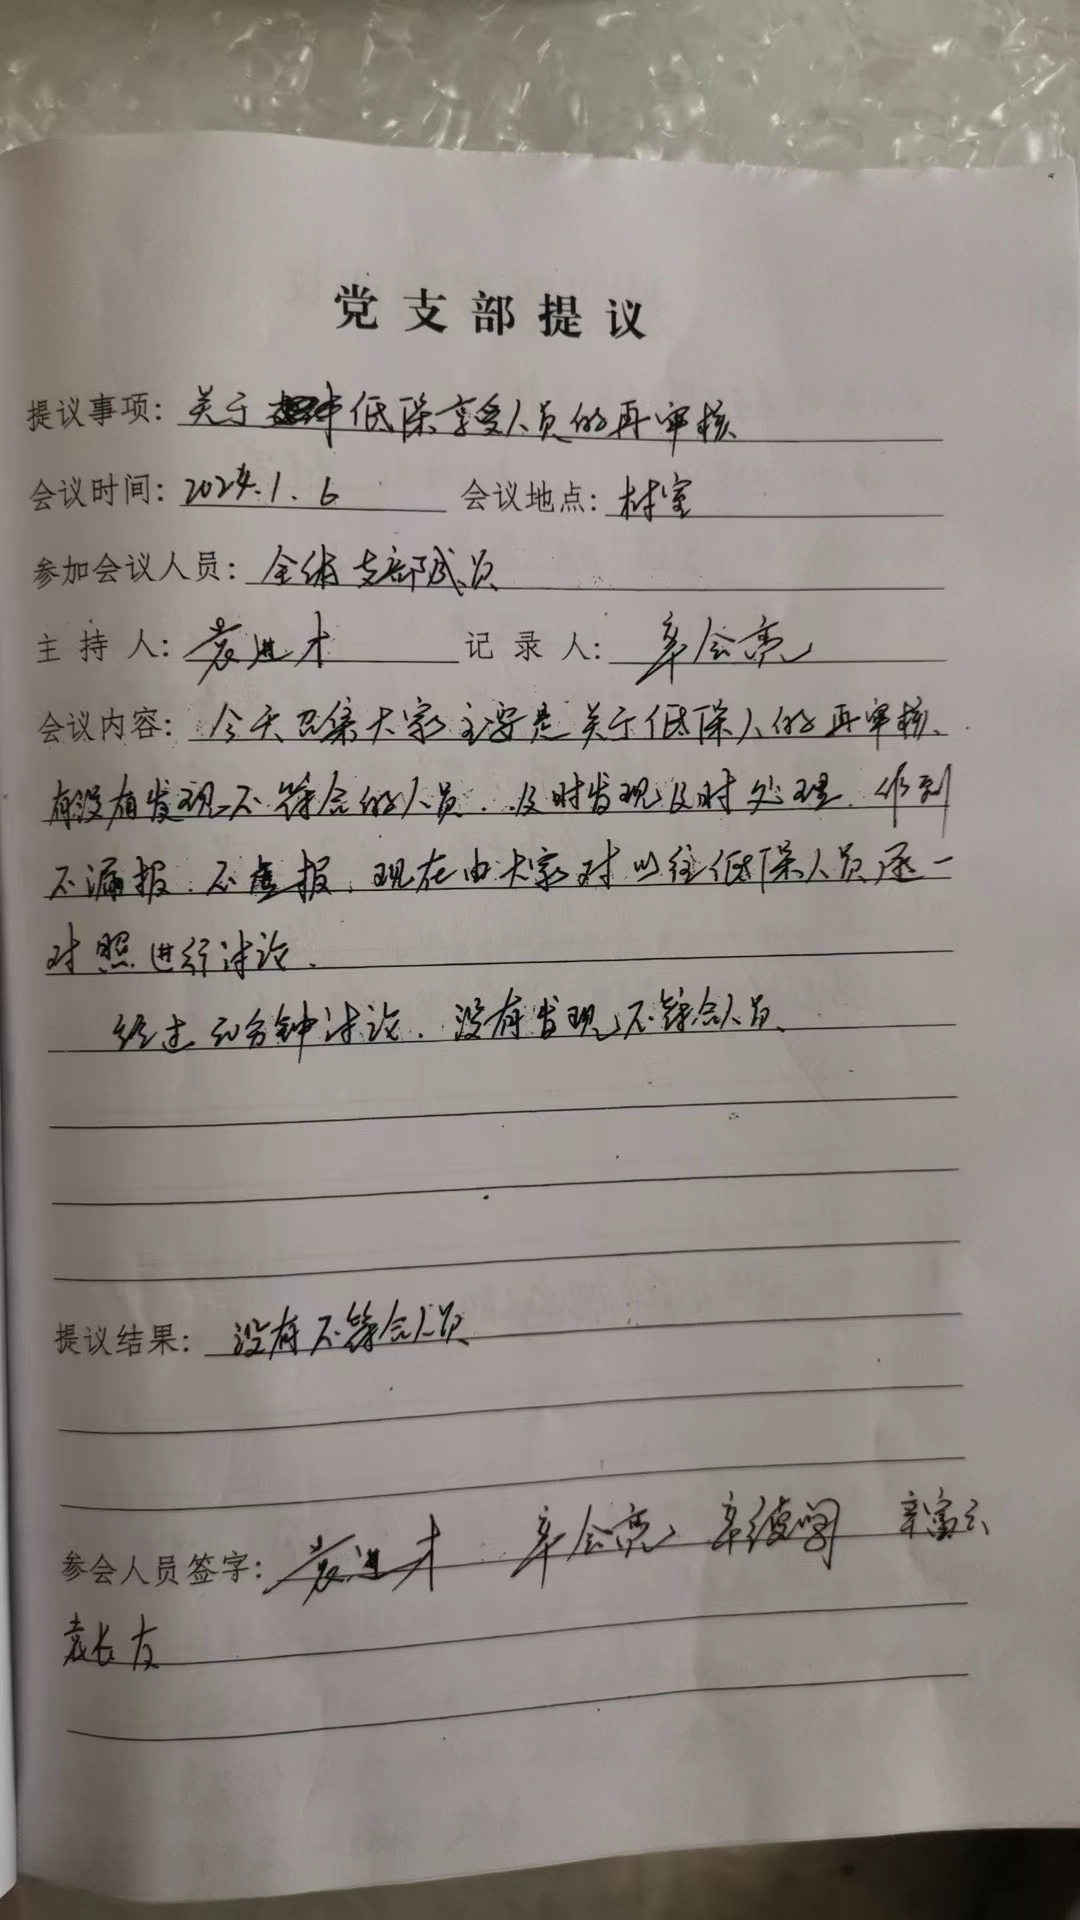 党支部提议
提议事项：关于低保享受人员的再审核
会议时间：2024.1.6 会议地点：村室
参加会议人员：全体支部成员
主持人：袁进才 记录人：辛会亮
会议内容：今天召集大家主要是关于低保人的再审核、
有没有发现不符合的人员．及时发现及时处理．作到
不漏报．不虚报．现在由大家对以往低保人员逐一
对照进行讨论．
经过50分钟讨论．没有发现不符合人员、
提议结果：没有不符合人员
参会人员签字：袁进才 辛会亮 辛富云
袁长友